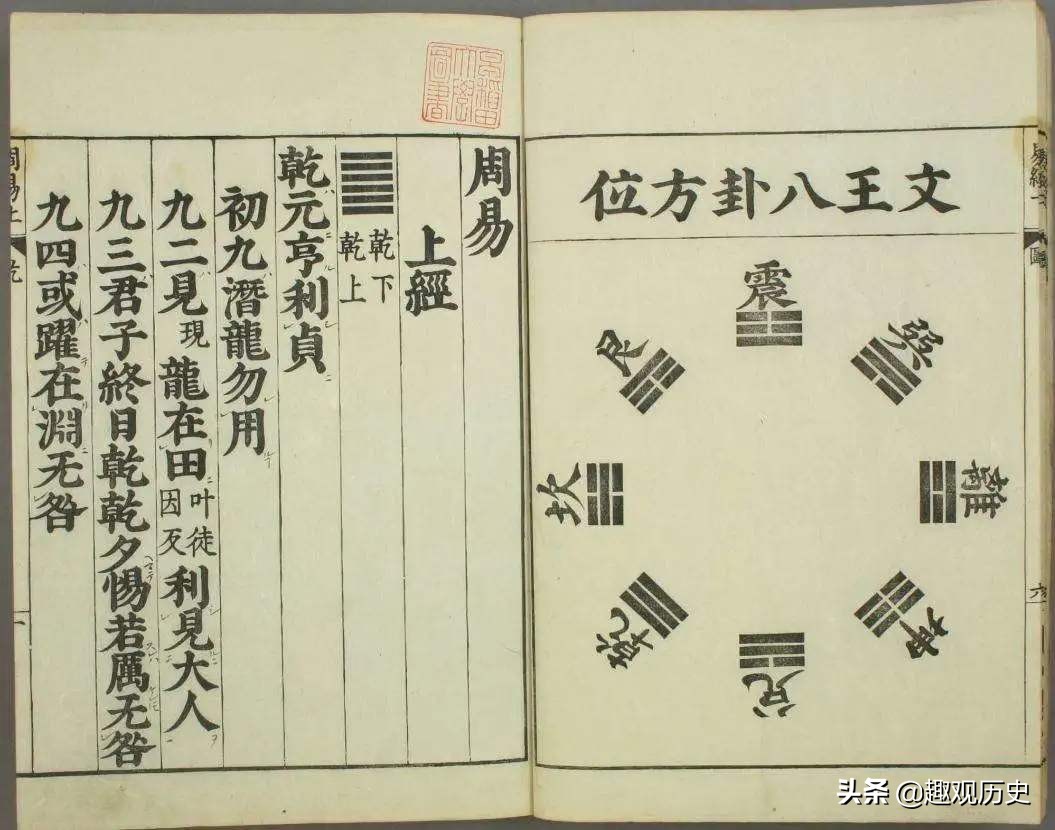 文王八卦方位
震
巽
離
坤
兌
乾
坎
艮
六
周易
上經
乾下
乾上
乾元亨利貞
初九潛龍勿用
九二見現龍在田叶徒因反利見大人
九三君子終日乾乾夕惕若厲无咎
九四或躍在淵无咎
周易上
乾
一
头条 @趣观历史